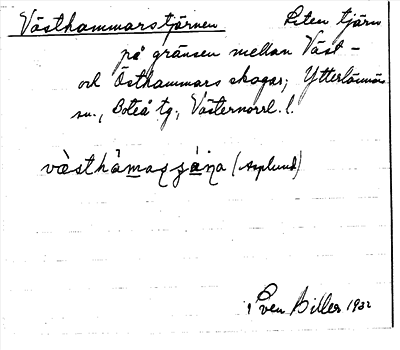 Västhammarstjärnen Liten tjärn
på gränsen mellan Väst-
och Östhammars skogar; Ytterlännäs
sn., Boteå tg., Västernorrl. l.
(Asplund)
Sven Biller 1932